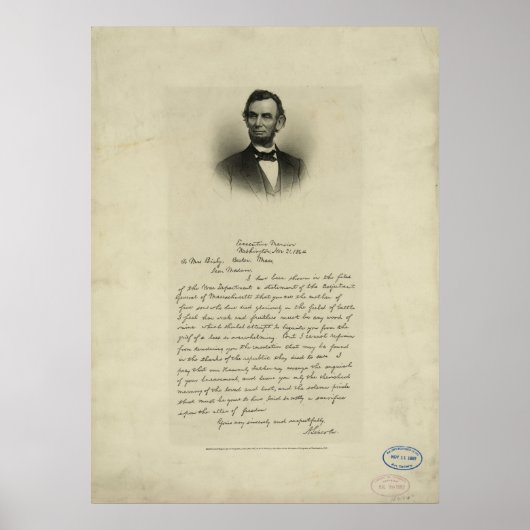 Executive Mansion
Washington, Nov 21, 1864
To Mrs Bixby, Boston, Mass
Dear Madam,
I have been shown in the files
of the War Department a statement of the Adjutant
General of Massachusetts that you are the mother of
five sons who have died gloriously on the field of battle
I feel how weak and fruitless must be any word of
mine which should attempt to beguile you from the
grief of a loss so overwhelming But I cannot refrain
from tendering you the consolation that may be found
in the thanks of the republic they died to save I
pray that our Heavenly Father may assuage the anguish
of your bereavement, and leave you only the cherished
memory of the loved and lost, and the solemn pride
that must be yours to have laid so costly a sacrifice
upon the altar of freedom
Yours very sincerely and respectfully,
A. Lincoln
NOV 11 1887